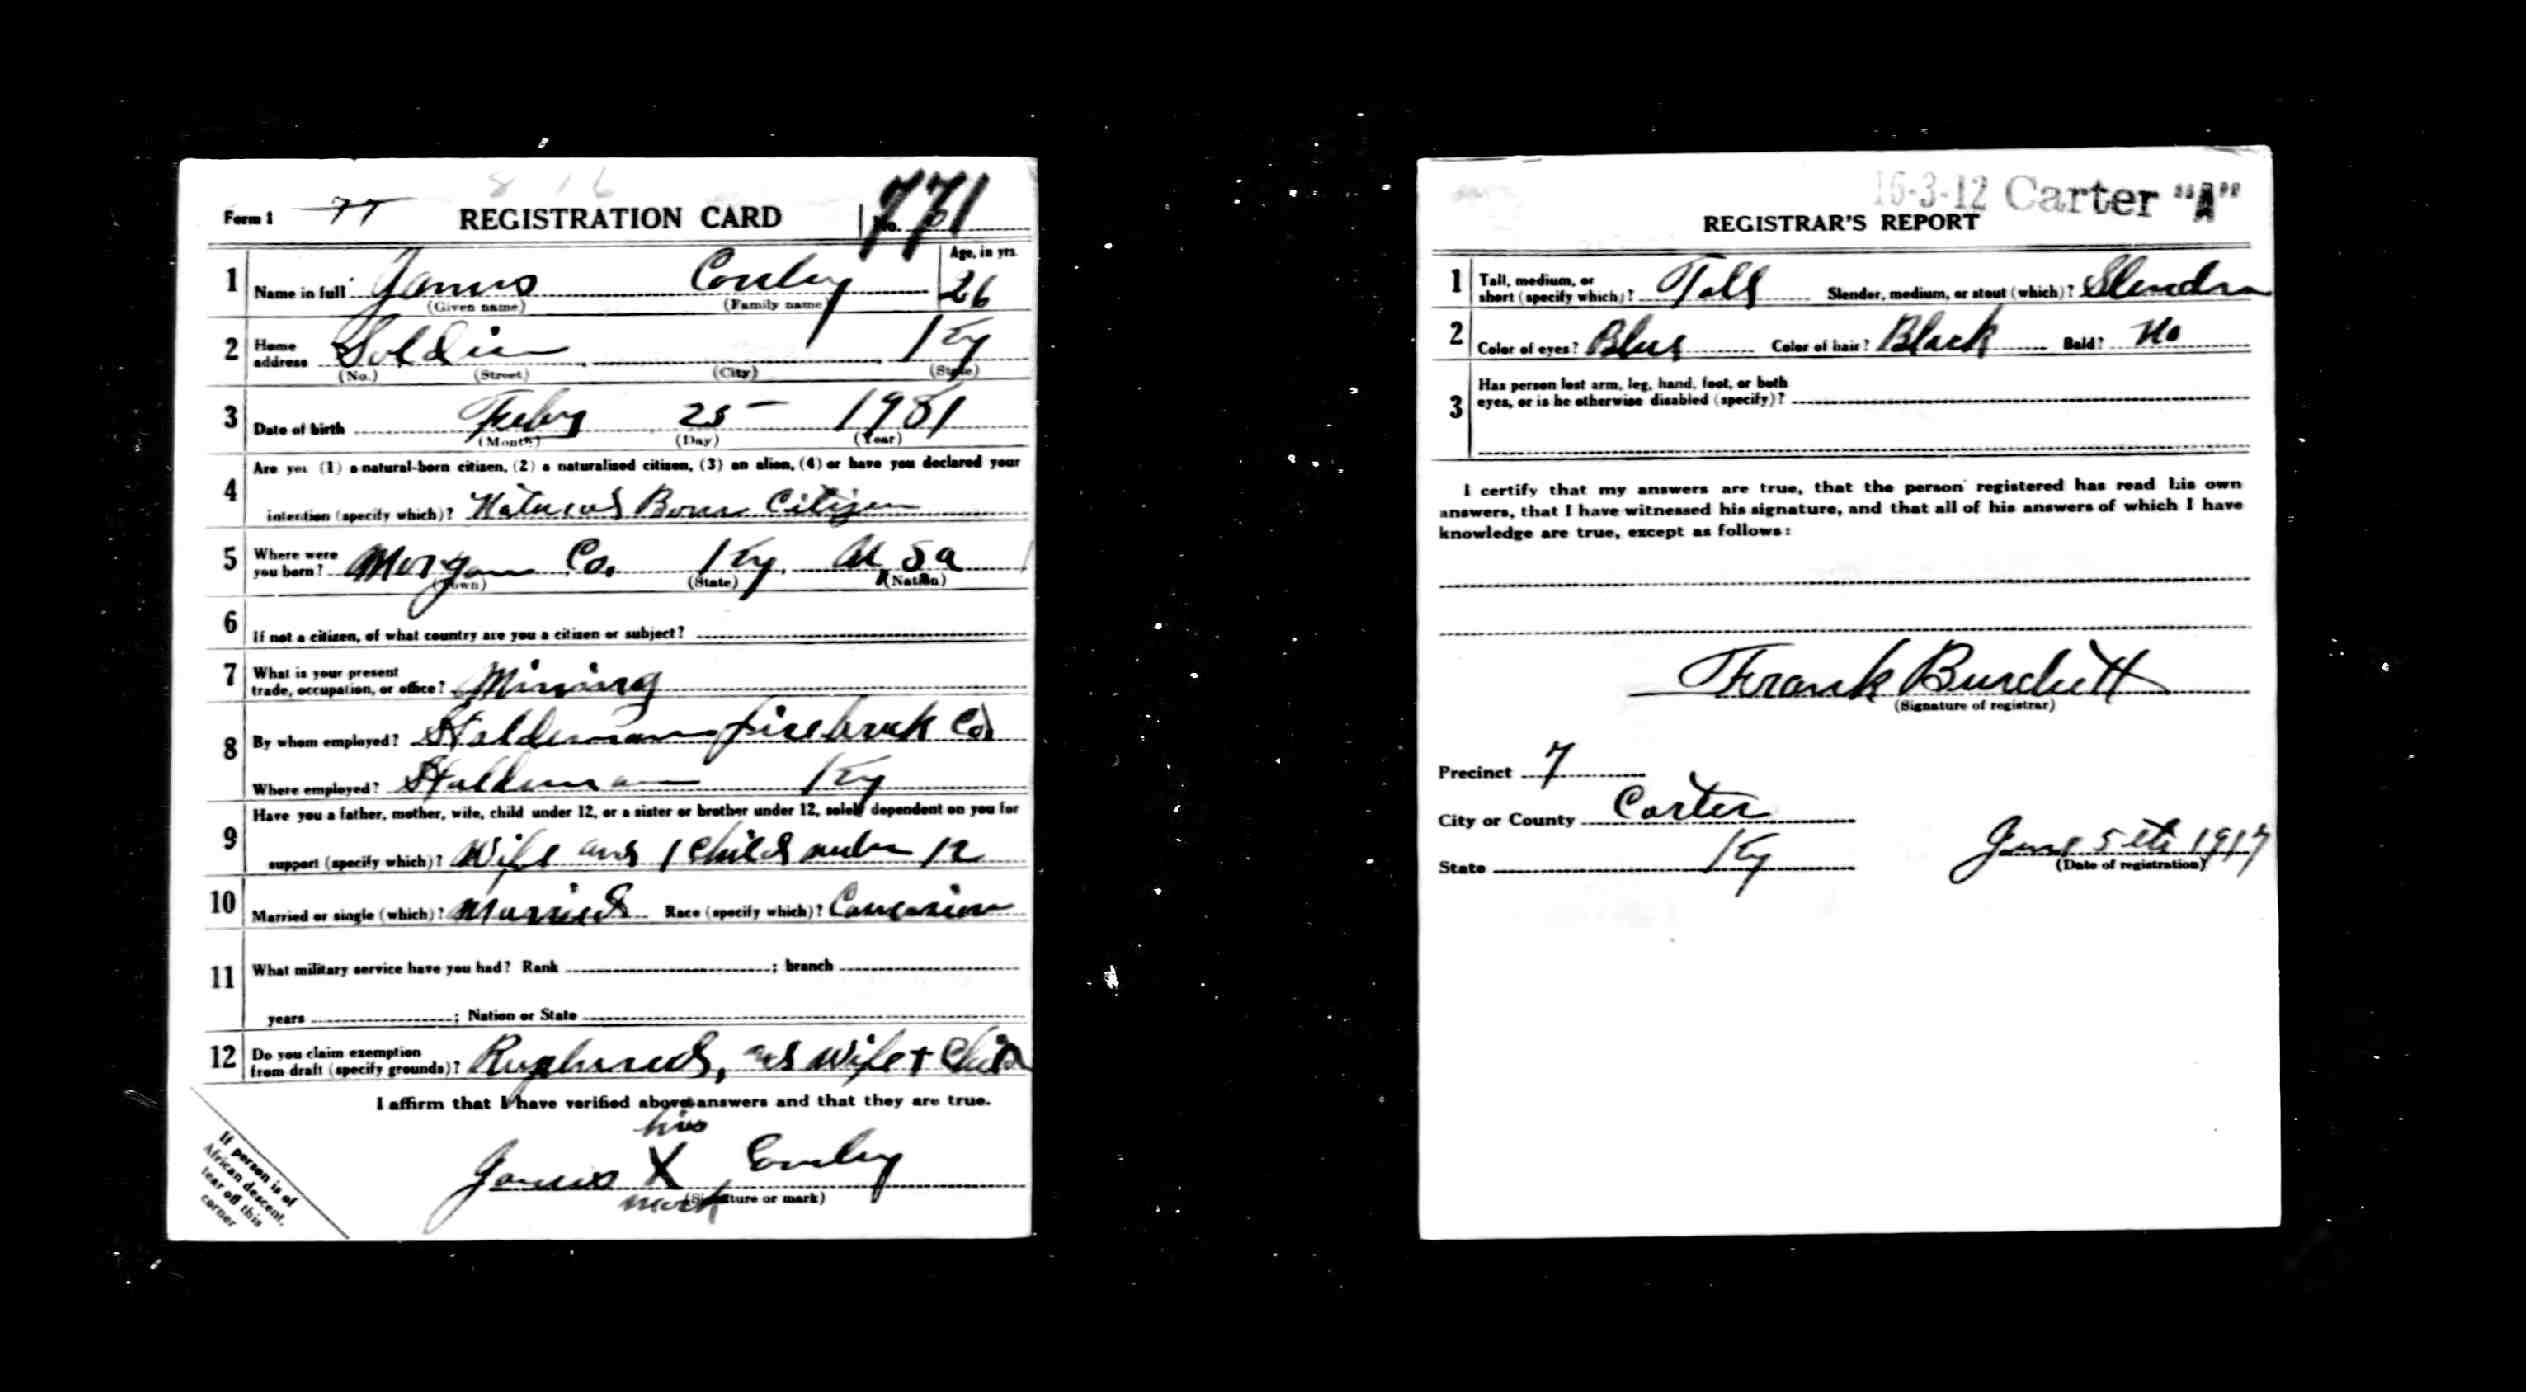 Form 1 77 REGISTRATION CARD No. 771
1 Name in full James Conley Age, in yrs. 26
(Given name) (Family name)
2 Home address Soldier Ky
(No.) (Street) (City) (State)
3 Date of birth Feby 25 — 1981
(Month) (Day) (Year)
Are you (1) a natural-born citizen, (2) a naturalized citizen, (3) an alien, (4) or have you declared your
4 intention (specify which)? Natural Born Citizen
5 Where were you born? Morgan Co. Ky. U.Sa
(Town) (State) (Nation)
6 If not a citizen, of what country are you a citizen or subject?
7 What is your present trade, occupation, or office? Mining
8 By whom employed? Haldeman firebrick Co
Where employed? Haldeman Ky
Have you a father, mother, wife, child under 12, or a sister or brother under 12, solely dependent on you for
9 support (specify which)? Wife and 1 Child under 12
10 Married or single (which)? Married Race (specify which)? Caucasian
11 What military service have you had? Rank ; branch
years ; Nation or State
12 Do you claim exemption from draft (specify grounds)? and Wife +
I affirm that I have verified above answers and that they are true.
his
James X Conley
mark (Signature or mark)
If person is of
African descent,
tear off this
corner
16-3-12 Carter "A"
REGISTRAR'S REPORT
1 Tall, medium, or short (specify which)? Tall Slender, medium, or stout (which)? Slender
2 Color of eyes? Blue Color of hair? Black Bald? No
3 Has person lost arm, leg, hand, foot, or both
eyes, or is he otherwise disabled (specify)?
I certify that my answers are true, that the person registered has read his own
answers, that I have witnessed his signature, and that all of his answers of which I have
knowledge are true, except as follows:
Frank Burchett
(Signature of registrar)
Precinct 7
City or County Carter
State Ky June 5th 1917
(Date of registration)